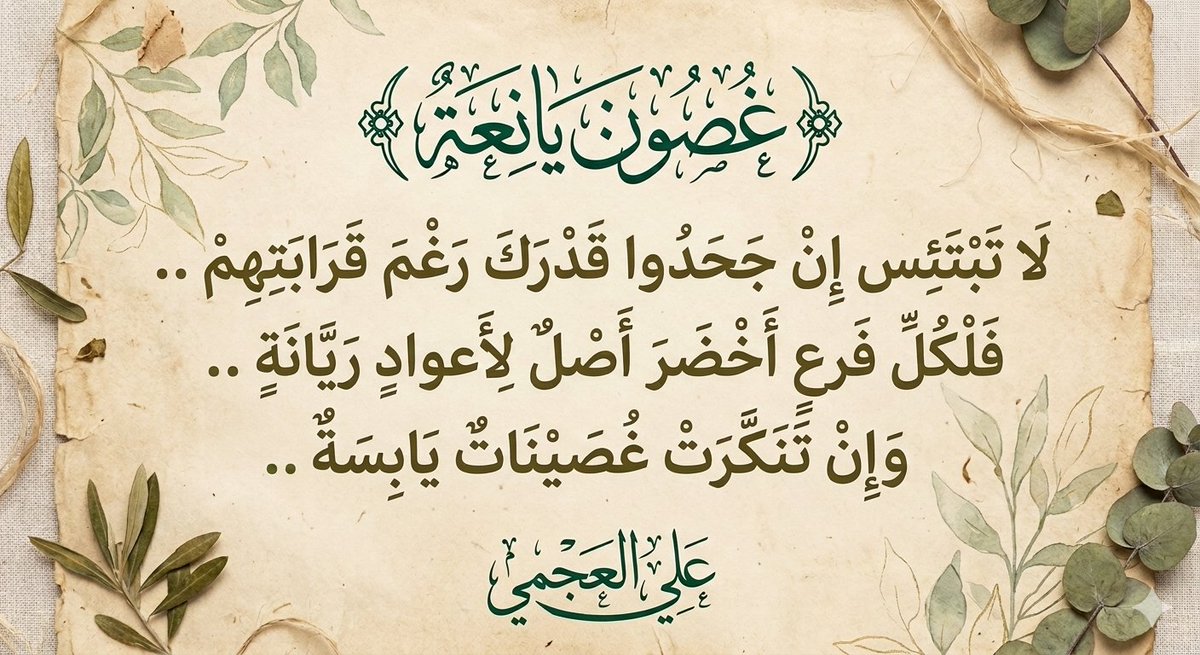 ﴿غُصُونَ يَانِعَةٌ﴾
لَا تَبْتَئِس إِنْ جَحَدُوا قَدْرَكَ رَغْمَ قَرَابَتِهِمْ ..
فَلْكُلِّ فَرعٍ أَخْضَرَ أَصْلٌ لِأَعوادٍ رَيَّانَةٍ ..
وَإِنْ تَنَكَّرَتْ غُصَيْنَاتٌ يَابِسَةٌ ..
عَلِي العَجْمِي